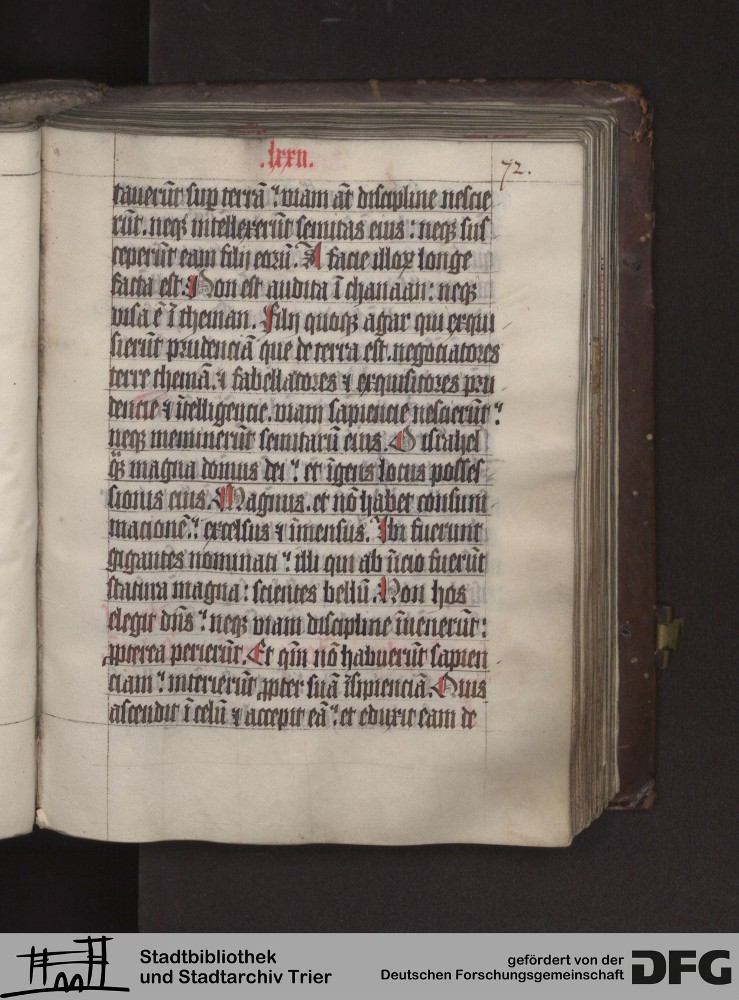 .lxxii.
72.
tauerūt sup terrā : viam āt discipline nescie
rūt. neqꝫ intellexerūt semitas eius : neqꝫ sus
ceperūt eam filij eorū. A facie illoꝝ longe
facta est. Non est audita ī chanaan : neqꝫ
visa ē ī theman. Filij quoqꝫ agar qui exqui
sierūt prudenciā que de terra est. negociatores
terre themā. ⁊ fabellatores ⁊ exquisitores pru
dencie ⁊ ītelligencie. viam sapiencie nescierūt :
neqꝫ meminerūt semitarū eius. O israhel
qͣꝫ magna domus dei : et īgens locus posses
sionis eius. Magnus. et nō habet consum
macionē : excelsus ⁊ īmensus. Ibi fuerunt
gigantes nominati : illi qui ab īicio fuerūt
statura magna : scientes bellū. Non hos
elegit dn̄s : neqꝫ viam discipline īuenerūt :
ꝓpterea perierūt. Et qm̄ nō habuerūt sapien
ciam : interierūt ꝓpter suā īsipienciā. Quis
ascendit ī celū ⁊ accepit eā : et eduxit eam de
Stadtbibliothek
und Stadtarchiv Trier
gefördert von der
Deutschen Forschungsgemeinschaft
DFG